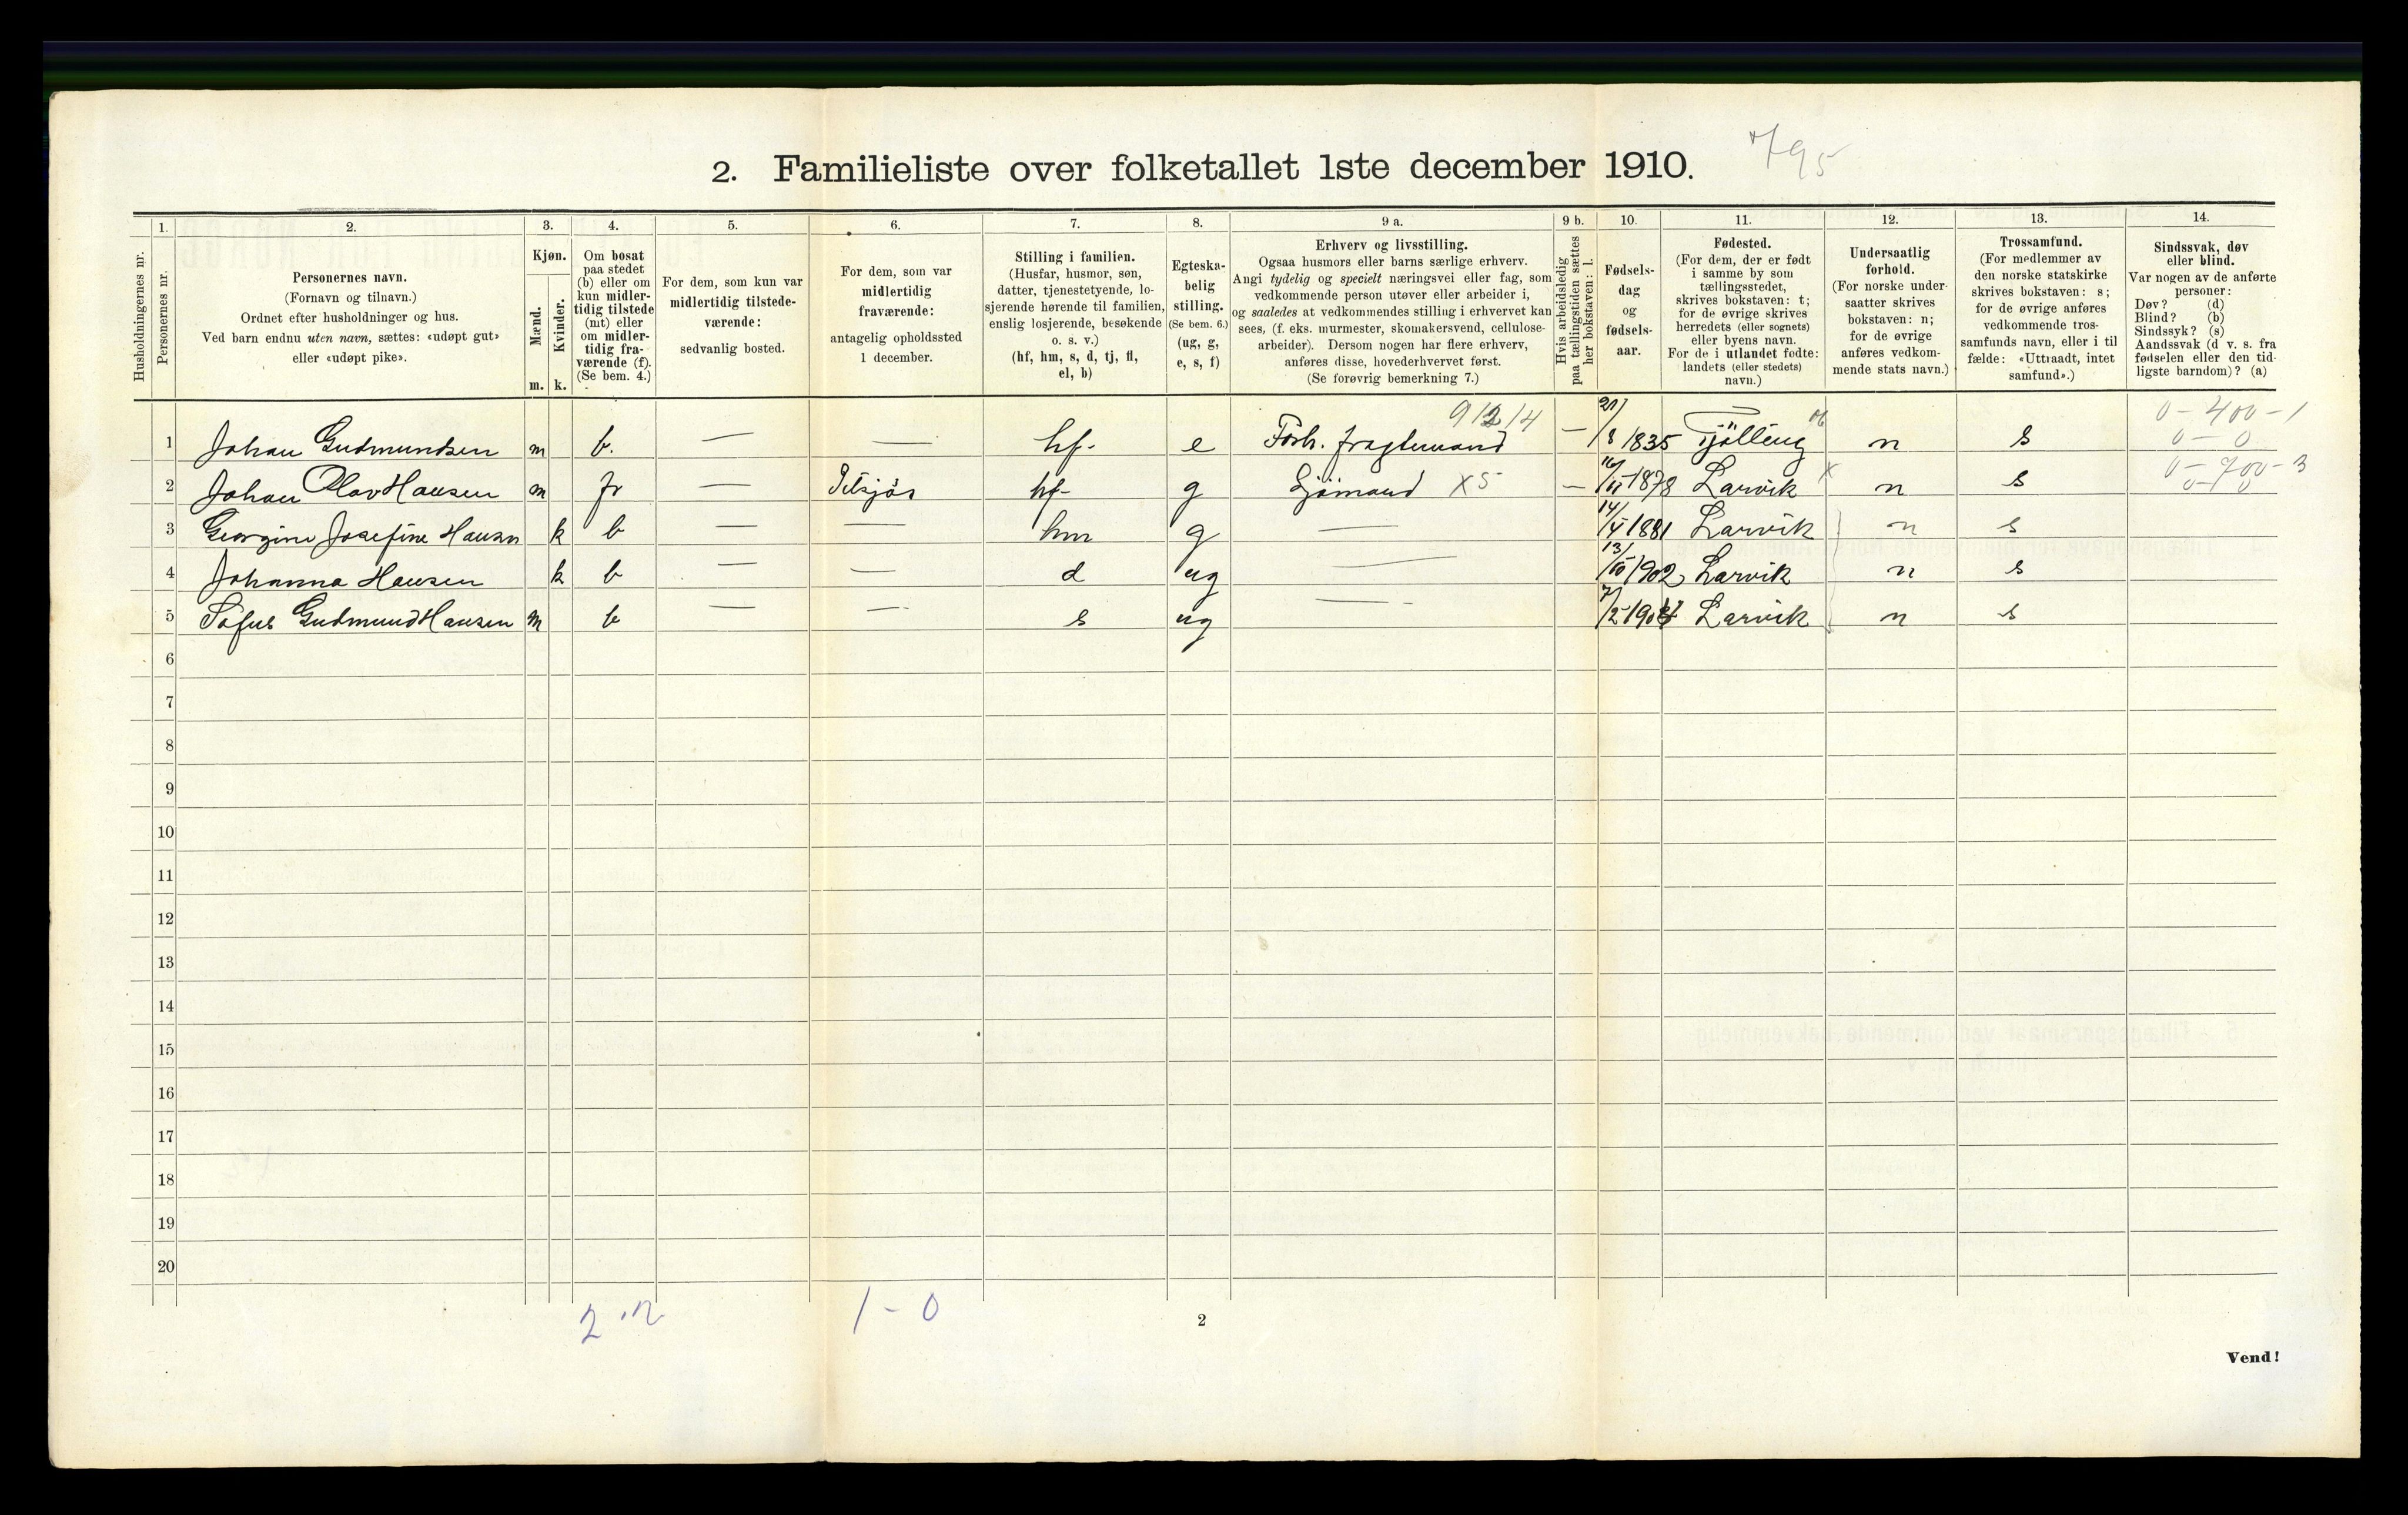 2. Familieliste over folketallet 1ste december 1910. 795
1. 2. 3. 4. 5. 6. 7. 8. 9 a. 9 b. 10. 11. 12. 13. 14.
Husholdningernes nr.
Personernes nr.
Personernes navn.
(Fornavn og tilnavn.)
Ordnet efter husholdninger og hus.
Ved barn endnu uten navn, sættes: «udøpt gut»
eller «udøpt pike».
Kjøn.
Mænd.
m.
Kvinder.
k.
Om bosat
paa stedet
(b) eller om
kun midler-
tidig tilstede
(mt) eller
om midler-
tidig fra-
værende (f).
(Se bem. 4.)
For dem, som kun var
midlertidig tilstede-
værende:
sedvanlig bosted.
For dem, som var
midlertidig
fraværende:
antagelig opholdssted
1 december.
Stilling i familien.
(Husfar, husmor, søn,
datter, tjenestetyende, lo-
sjerende hørende til familien,
enslig losjerende, besøkende
o. s. v.)
(hf, hm, s, d, tj, fl,
el, b)
Egteska-
belig
stilling.
(Se bem. 6.)
(ug, g,
e, s, f)
Erhverv og livsstilling.
Ogsaa husmors eller barns særlige erhverv.
Angi tydelig og specielt næringsvei eller fag, som
vedkommende person utøver eller arbeider i,
og saaledes at vedkommendes stilling i erhvervet kan
sees, (f. eks. murmester, skomakersvend, cellulose-
arbeider). Dersom nogen har flere erhverv,
anføres disse, hovederhvervet først.
(Se forøvrig bemerkning 7.)
Hvis arbeidsledig
paa tællingstiden sættes
her bokstaven: l.
Fødsels-
dag
og
fødsels-
aar.
Fødested.
(For dem, der er født
i samme by som
tællingsstedet,
skrives bokstaven: t;
for de øvrige skrives
herredets (eller sognets)
eller byens navn.
For de i utlandet fødte:
landets (eller stedets)
navn.)
Undersaatlig
forhold.
(For norske under-
saatter skrives
bokstaven: n;
for de øvrige
anføres vedkom-
mende stats navn.)
Trossamfund.
(For medlemmer av
den norske statskirke
skrives bokstaven: s;
for de øvrige anføres
vedkommende tros-
samfunds navn, eller i til
fælde: «Uttraadt, intet
samfund».)
Sindssvak, døv
eller blind.
Var nogen av de anførte
personer:
Døv? (d)
Blind? (b)
Sindssyk? (s)
Aandssvak (d v. s. fra
fødselen eller den tid-
ligste barndom)? (a)
0 - 400 - 1
1 Johan Gudmundsen m b. — — hf- e Forh. fragtemand — 21/8 1835 Tjölling n s 0 - 0
0 - 700 - 3
2 Johan Olav Hansen m fr — Tilsjøs hf- g Sjömand X5 — 16/11 1878 Larvik n s 0 - 0
3 Georgine Josefine Hansen k b — — hm g — 14/4 1881 Larvik n s
4 Johanna Hansen k b — — d ug — 13/10 1902 Larvik n s
5 Sofus Gudmund Hansen m b — — s ug — 7/2 Larvik n s
6
7
8
9
10
11
12
13
14
15
16
17
18
19
20
1 - 0
2
Vend!